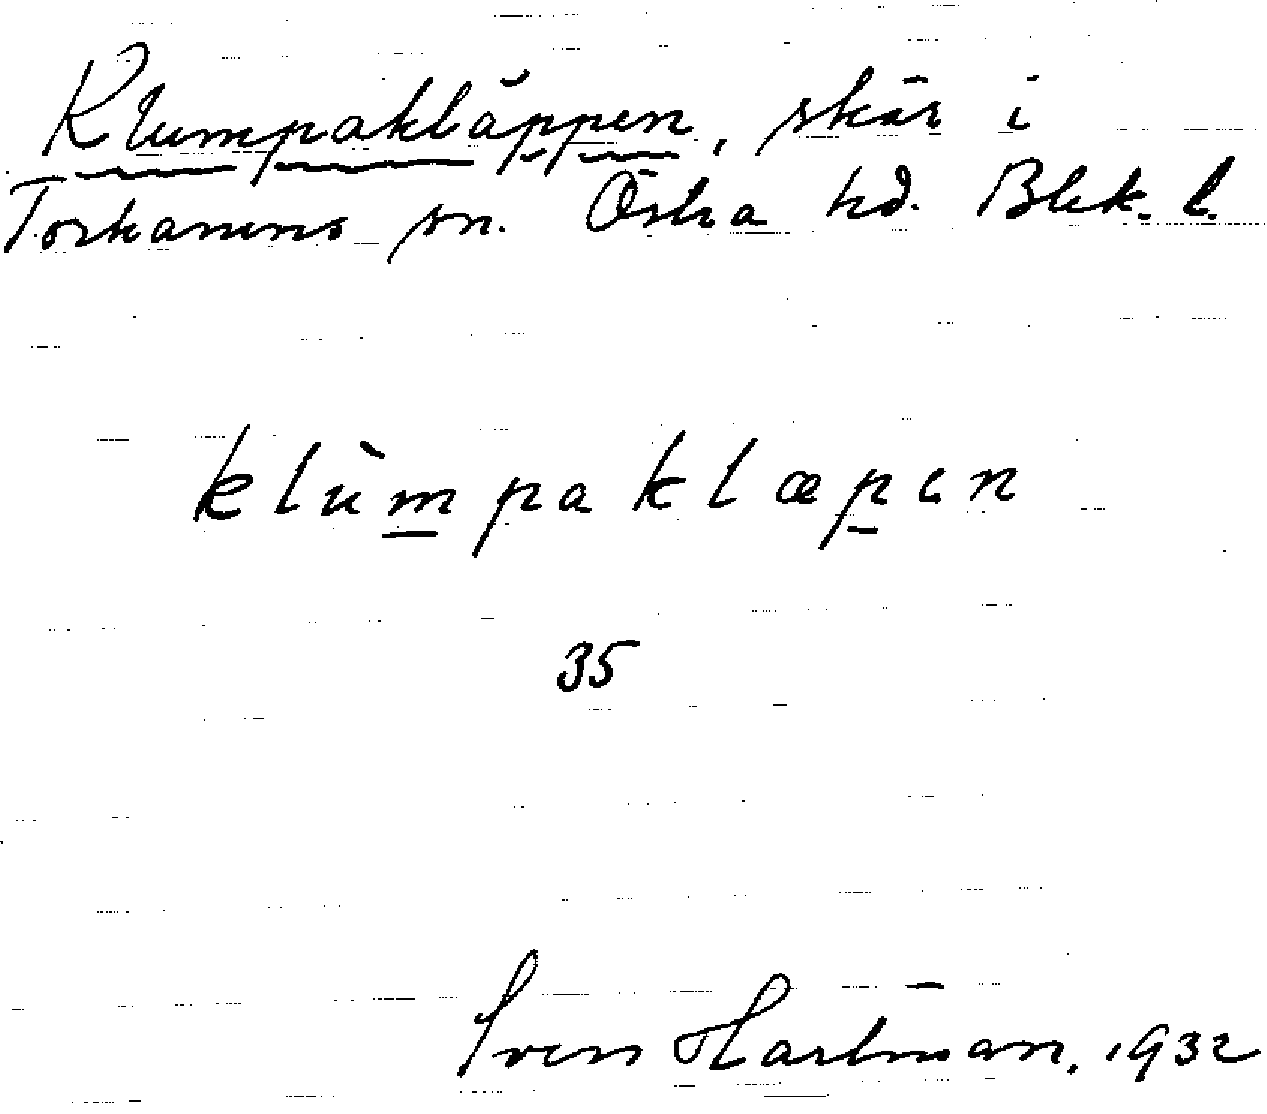 Klumpakläppen, skär i
Torhamns sn. Östra hd. Blek. l.
klùmpaklæpen
35
Sven Hartman, 1932